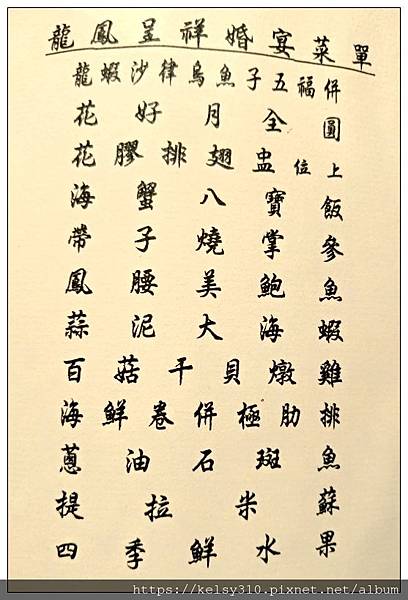 龍鳳呈祥婚宴菜單
龍蝦沙律烏魚子五福併
花好月全圓
花膠排翅盅位上
海蟹八寶飯
帶子燒掌參
鳳腰美鮑魚
蒜泥大海蝦
百菇干貝燉雞
海鮮卷併極肋排
蔥油石斑魚
提拉米蘇
四季鮮水果
https://kelsy310.pixnet.net/album